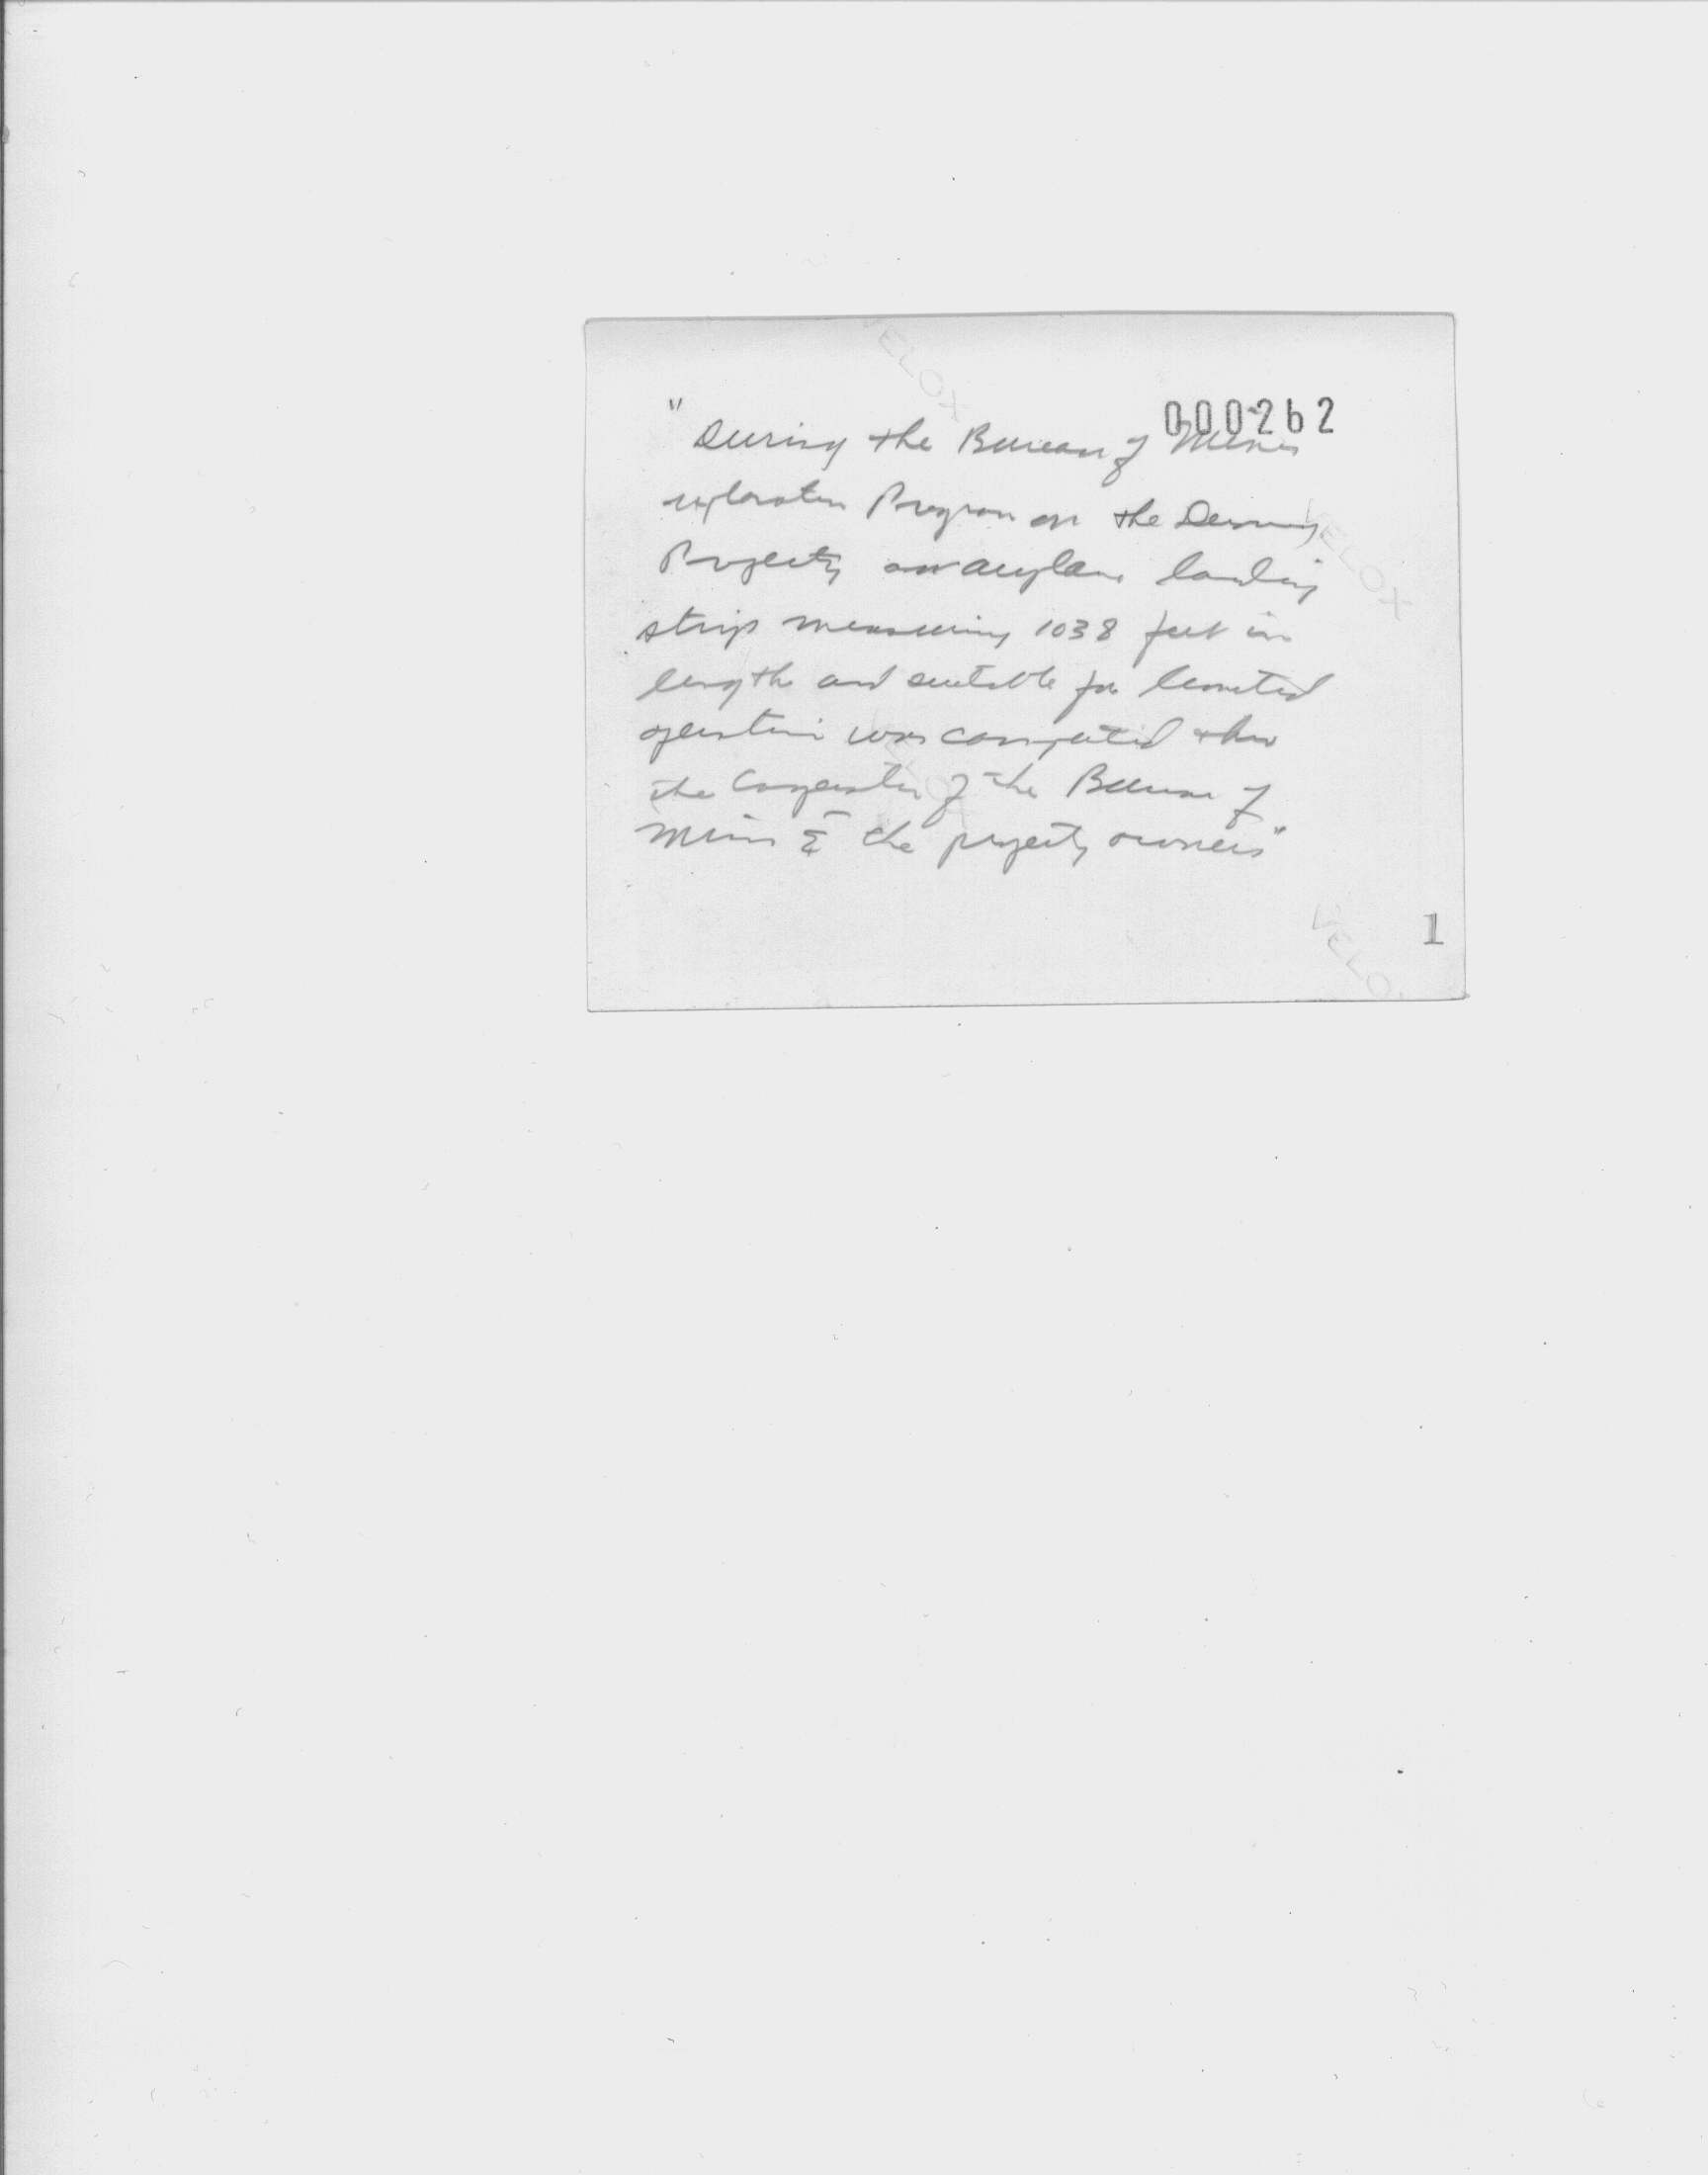 VELOX
000262
"During the Bureau of Mines
exploration Program on the
VELOX
Property an airplane landing
strip measuring 1038 feet in
length and suitable for limited
operation was completed thru
the Cooperation of the Bureau of
Mines & the property owners"
1
VELO